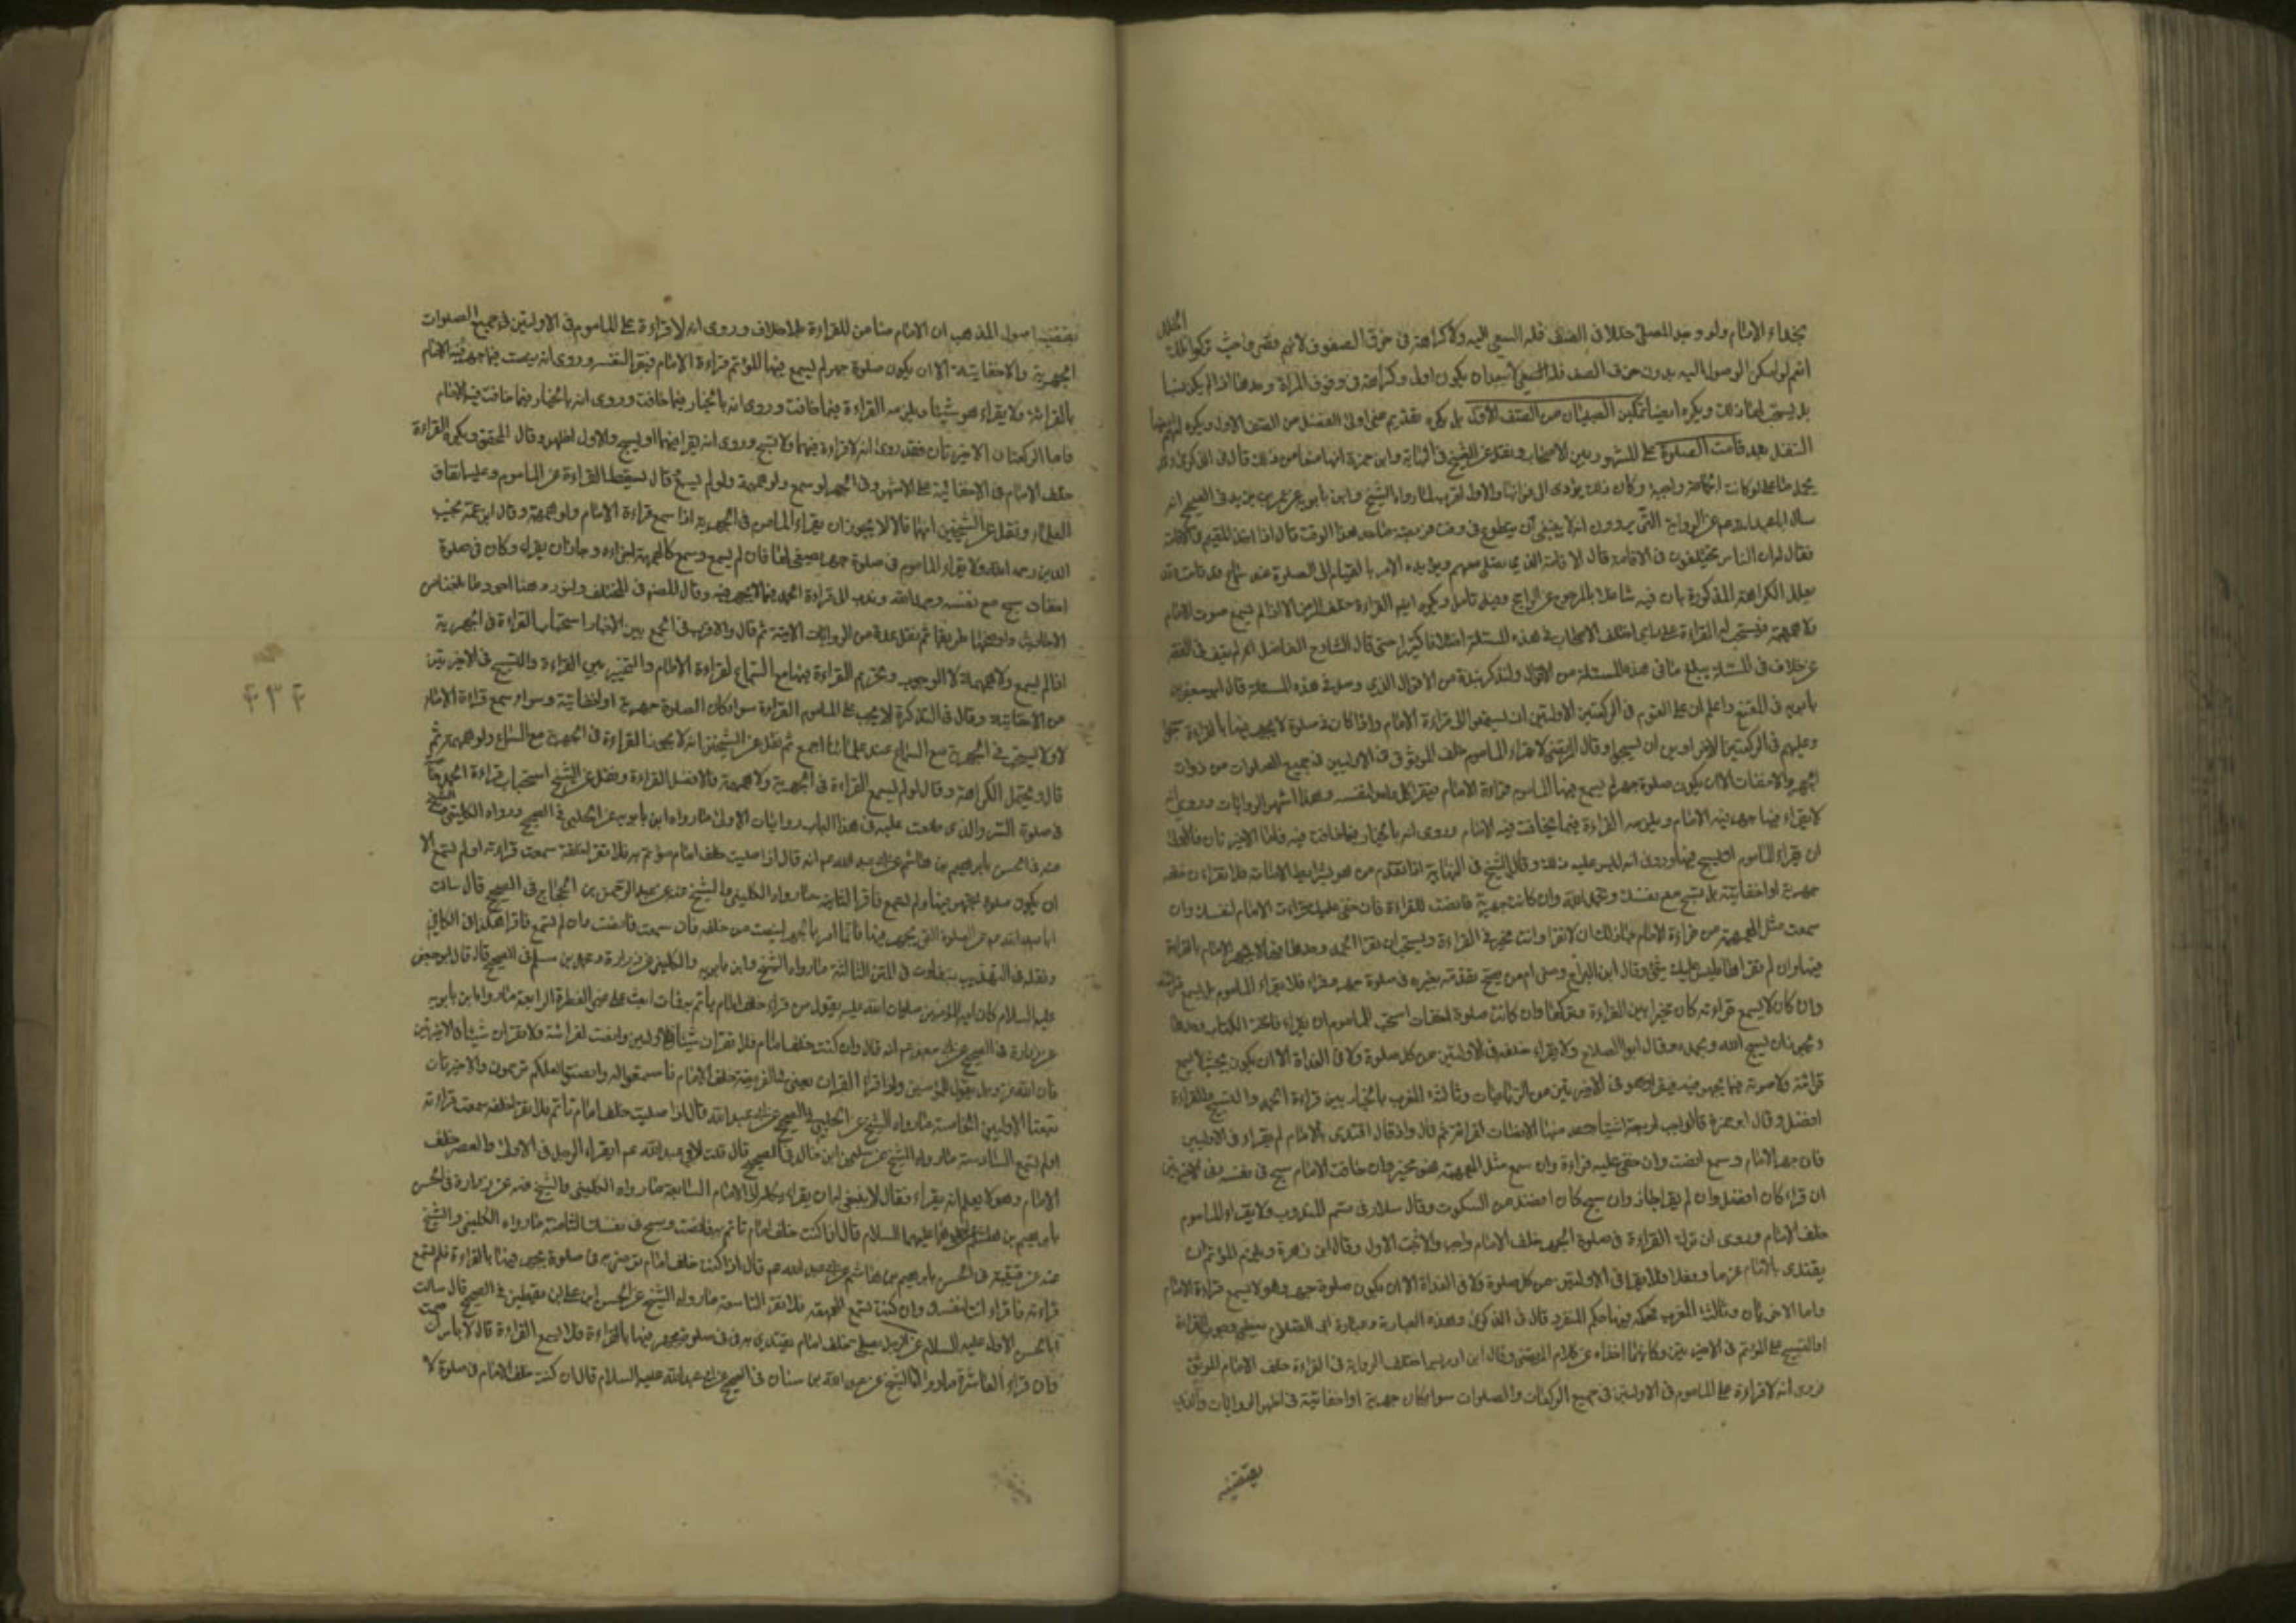 بحذاء الامام ولو وجد المصلي خللا في الصف فله السعي اليه ولا كراهة في خرق الصفوف لانهم قصروا حيث تركوا تلك
الخلل
نعم لو امكن الوصول اليه بدون خرق الصف فلا يبعد ان يكون اولى وكراهة وقوف المراة وحدها اذا لم يكن نساء
بل يستحب لها ذلك ويكره ايضا تمكين الصبيان من الصف الاول بل يكره تقديم من اولى الفضل من الصف الاول ويكره لهم ايضا
التنفل بعد قامت الصلوة على المشهور بين الاصحاب ونقل عن الشيخ في النهاية وابن حمزة انهما منعا من ذلك قال في الذكرى وقد
يحمل على ما لو كانت الجماعة واجبة وكان ذلك يؤدي الى فواتها والاول اقرب لما رواه الشيخ وابن بابويه عن عمر بن يزيد في الصحيح انه
سال ابا عبد الله عم عن الرواية التي يروون انه لا ينبغي ان يتطوع في وقت فريضة ما حد هذا الوقت قال اذا اخذ المقيم في الاقامة
فقال له ان الناس يختلفون في الاقامة قال الاقامة الذي يصلي معهم ويؤيده الامر بالقيام الى الصلوة عند سماع قد قامت وقد
يعلل الكراهة المذكورة بان فيه تشاغلا بالمرجوح عن الراجح وفيه تامل ويكره ايضا القراءة خلف المرضي الا اذا لم يسمع صوت الامام
ولا همهمة فيستحب له القراءة على راي اختلف الاصحاب في هذه المسئلة اختلافا كثيرا حتى قال الشارح الفاضل انه لم يقف في الفقه
على خلاف في مسئلة يبلغ ما في هذه المسئلة من الاقوال ولنذكر نبذة من الاقوال الذي وصل في هذه المسئلة قال ابو جعفر بن
بابويه في المقنع واعلم ان على القوم في الركعتين الاولتين ان يستمعوا الى قراءة الامام واذا كان في صلوة لا يجهر فيها بالقراءة سبحوا
وعليهم في الركعتين الاخراوين ان يسبحوا وقال المرتضى لا يقراء الماموم خلف الموثوق في الاوليين في جميع الصلوات من ذوات
الجهر والاخفات الا ان يكون صلوة جهر لم يسمع فيها الماموم قراءة الامام فيقرا كل واحد لنفسه وهذا اشهر الروايات وروي انه
لا يقراء فيما جهر فيه الامام ويلزمه القراءة فيما يخافت فيه الامام وروي انه بالخيار فيما خافت فيه فاما الاخيرتان فالاولى
ان يقراء الماموم او يسبح فيهما وروي انه ليس عليه ذلك وقال الشيخ في النهاية اذا تقدم من هو بشرايط الامامة فلا تقراءن خلفه
جهرية او اخفاتية بل تسبح مع نفسك وتحمد الله وان كانت جهرية فانصت للقراءة فان خفي عليك قراءة الامام لنفسك وان
سمعت مثل الهمهمة من قراءة الامام جاز لك ان لا تقرا وانت مخير في القراءة ويستحب ان تقرا الحمد وحدها فيما لا يجهر الامام بالقراءة
فيها وان لم تقراها فليس عليك شيء وقال ابن البراج ومتى ام من يصح تقدمه بغيره في صلوة جهر وقراء فلا يقراء الماموم بل يسمع قرائته
وان كان لا يسمع قراءته كان مخيرا بين القراءة وتركها وان كانت صلوة اخفات استحب للماموم ان يقراء فاتحة الكتاب وحدها
ويجوز ان يسبح الله ويحمده وقال ابو الصلاح ولا يقراء خلفه في الاولتين من كل صلوة ولا في الغداة الا ان يكون بحيث لا يسمع
قرائته ولا صوته فيما يجهر فيه فيقراء وهو في الاخيرتين من الرباعيات وثالثة المغرب بالخيار بين قراءة الحمد والتسبيح والقراءة
افضل وقال ابو حمزة فالواجب اربعة اشياء احدها الانصات لقراءته ثم قال واذا اقتدى بالامام لم يقراء في الاوليين
فان جهر الامام وسمع انصت وان خفي عليه قراءة وان سمع مثل الهمهمة فهو مخير وان خافت الامام سبح في نفسه وفي الاخيرتين
ان قراء كان افضل وان لم يقرا جاز وان سبح كان افضل من السكوت وقال سلار في قسم المندوب ولا يقراء الماموم
خلف الامام وروي ان ترك القراءة في صلوة الجهر خلف الامام واجب والاثبت الاول وقال ابن زهرة ويلزم المؤتم ان
يقتدى بالامام عزما وفعلا فلا يقرا في الاولتين من كل صلوة ولا في الغداة الا ان يكون صلوة جهر وهو لا يسمع قراءة الامام
واما الاخيرتان وثالثة المغرب فحكمه فيها حكم المنفرد قال في الذكرى وهذه العبارة وعبارة ابي الصلاح يعطي وجوب القراءة
او التسبيح على المؤتم في الاخيرتين وكانهما اخذاه عن كلام المرتضى وقال ابن ادريس اختلف الرواية في القراءة خلف الامام الموثوق
فروى انه لا قراءة على الماموم في الاولتين في جميع الركعات والصلوات سواء كان جهرية او اخفاتية في اظهر الروايات والذي
يقتضيه
يقتضيه اصول المذهب ان الامام ضامن للقراءة بلا خلاف وروي انه لا قراءة على الماموم في الاولتين في جميع الصلوات
الجهرية والاخفاتية الا ان يكون صلوة جهر لم يسمع فيها المؤتم قراءة الامام فيقرا لنفسه وروي انه ينصت فيما جهر فيه الامام
بالقرائة ولا يقراء هو شيئا ويلزمه القراءة فيما خافت وروي انه بالخيار فيما خافت فيه الامام
فاما الركعتان الاخيرتان فقد روي انه لا قراءة فيهما ولا تسبيح وروي انه يقرا فيهما او يسبح والاول اظهر وقال المحقق ويكره القراءة
خلف الامام في الاخفاتية على الاشهر وفي الجهر لو سمع ولو همهمة ولو لم يسمع قال يسقط القراءة عن الماموم وعليه اتفاق
العلماء ونقل عن الشيخين انهما قالا لا يجوز ان يقراء الماموم في الجهرية اذا سمع قراءة الامام ولو همهمة وقال ابن عمه نجيب
الدين رحمه الله ولا يقراء الماموم في صلوة جهر بل يصغي لها فان لم يسمع وسمع كالهمهمة اجزاه وجاز ان يقراء وكان في صلوة
اخفات سبح مع نفسه وحمد الله وندب الى قراءة الحمد فيما لا يجهر فيه وقال المصنف في المختلف
الاحاديث واوضحها طريقا ثم نقل عدة من الروايات الاتية ثم قال والاقرب في الجمع بين الاخبار استحباب القراءة في الجهرية
اذا لم يسمع ولا همهمة لا الوجوب وتحريم القراءة فيها مع السماع لقراءة الامام والتخيير بين القراءة والتسبيح في الاخيرتين
من الاخفاتية وقال في التذكرة لا يجب على الماموم القراءة سواء كان الصلوة جهرية او اخفاتية وسواء سمع قراءة الامام
او لا ولا يستحب في الجهرية مع السماع عند علمائنا اجمع ثم نقل عن الشيخين انه لا يجوز القراءة في الجهرية مع السماع ولو همهمة ثم
قال ويحتمل الكراهة وقال لو لم يسمع القراءة في الجهرية ولا همهمة فالافضل القراءة ونقل عن الشيخ استحباب قراءة الحمد
في صلوة السر والذي وقفت عليه في هذا الباب روايات الاولى ما رواه ابن بابويه عن الحلبي في الصحيح ورواه الكليني
عنه في الحسن بابرهيم بن هاشم عن ابي عبد الله عم انه قال اذا صليت خلف امام تاتم به فلا تقرا خلفه سمعت قراءته او لم تسمع الا
ان يكون صلوة يجهر فيها ولم تسمع فاقرا الثانية ما رواه الكليني والشيخ عنه عن عبد الرحمن بن الحجاج في الصحيح قال سالت
ابا عبد الله عم عن الصلوة التي يجهر فيها فانما امر بالجهر لينصت من خلفه فان سمعت فانصت وان لم تسمع فاقرا هكذا في الكافي
ونقله في التهذيب بتفاوت في المتن الثالثة ما رواه الشيخ وابن بابويه والكليني عن زرارة ومحمد بن مسلم في الصحيح قال قال ابو جعفر
عليه السلام كان امير المؤمنين صلوات الله عليه يقول من قراء خلف امام ياتم به فمات بعث على غير الفطرة الرابعة ما رواه ابن بابويه
عن زرارة في الصحيح عن ابي جعفر عم انه قال وان كنت خلف امام فلا تقران شيئا في الاولتين وانصت لقرائته ولا تقران شيئا في الاخيرتين
فان الله عز وجل يقول للمؤمنين واذا قرئ القران يعني في الفريضة خلف الامام فاستمعوا له وانصتوا لعلكم ترحمون والاخيرتان
تبعا للاوليين الخامسة ما رواه الشيخ عن الحلبي في الصحيح عن ابي عبد الله قال اذا صليت خلف امام تاتم به فلا تقرا خلفه سمعت قراءته
او لم تسمع السادسة ما رواه الشيخ عن سليمن ابن خالد في الصحيح قال قلت لابي عبد الله عم ايقراء الرجل في الاولى والعصر خلف
الامام وهو لا يعلم انه يقراء فقال لا ينبغي له ان يقراء يكله الى الامام السابعة ما رواه الكليني والشيخ عنه عن زرارة في الحسن
بابرهيم بن هاشم عن احدهما عليهما السلام قال اذا كنت خلف امام تاتم به فانصت وسبح في نفسك الثامنة ما رواه الكليني والشيخ
عنه عن قتيبة في الحسن بابرهيم بن هاشم عن ابي عبد الله عم قال اذا كنت خلف امام ترتضي به في صلوة يجهر فيها بالقراءة فلم تسمع
قراءته فاقراء انت لنفسك وان كنت تسمع الهمهمة فلا تقرا التاسعة ما رواه الشيخ عن الحسن ابن علي بن يقطين في الصحيح قال سالت
ابا الحسن الاول عليه السلام عن الرجل يصلي خلف امام يقتدي به في صلوة يجهر فيها بالقراءة فلا يسمع القراءة قال لا باس ان صمت
وان قراء العاشرة ما رواه الشيخ عن عبد الله بن سنان في الصحيح عن ابي عبد الله عليه السلام قال ان كنت خلف الامام في صلوة لا